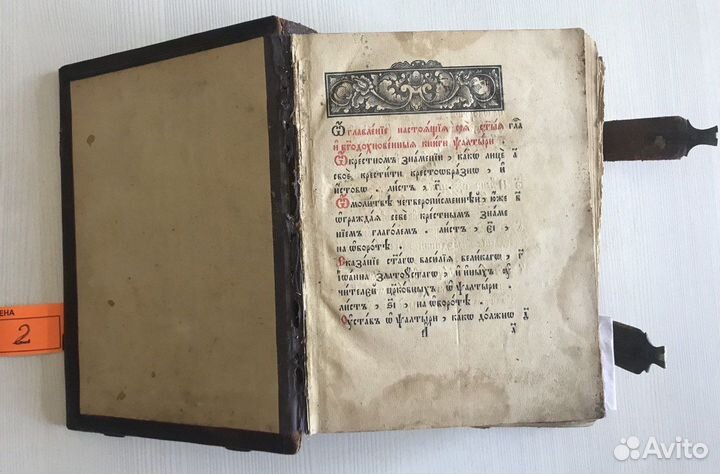 Ѡглавленїе настоѧщїѧ сеѧ ст҃ыѧ глⷡ҇а
и҆ бг҃одохновенныѧ книги ѱалтыри .
Ѡ крестномъ знаменїи , како лице а҃
свое , крестити крестообразно , и҆
и҆стово . листъ , г҃ .
Ѡ молитвѣ четверописменнѣй , ю҆же в҃
ѡ҆граждаѧ себе крестнымъ знаме
нїемъ глаголем . листъ , є҃і ,
на ѡ҆боротѣ .
Сказанїе ст҃агѡ василїѧ великагѡ , г҃
і҆ѡанна златоустагѡ , и҆ и҆ныхъ ѹ҆
чителей црковныхъ ѡ҆ ѱалтыри .
листъ , в҃і , на ѡ҆боротѣ .
Оуставъ ѡ҆ ѱалтыри , како должно д҃
а҃
ЦЕНА
2
Avito